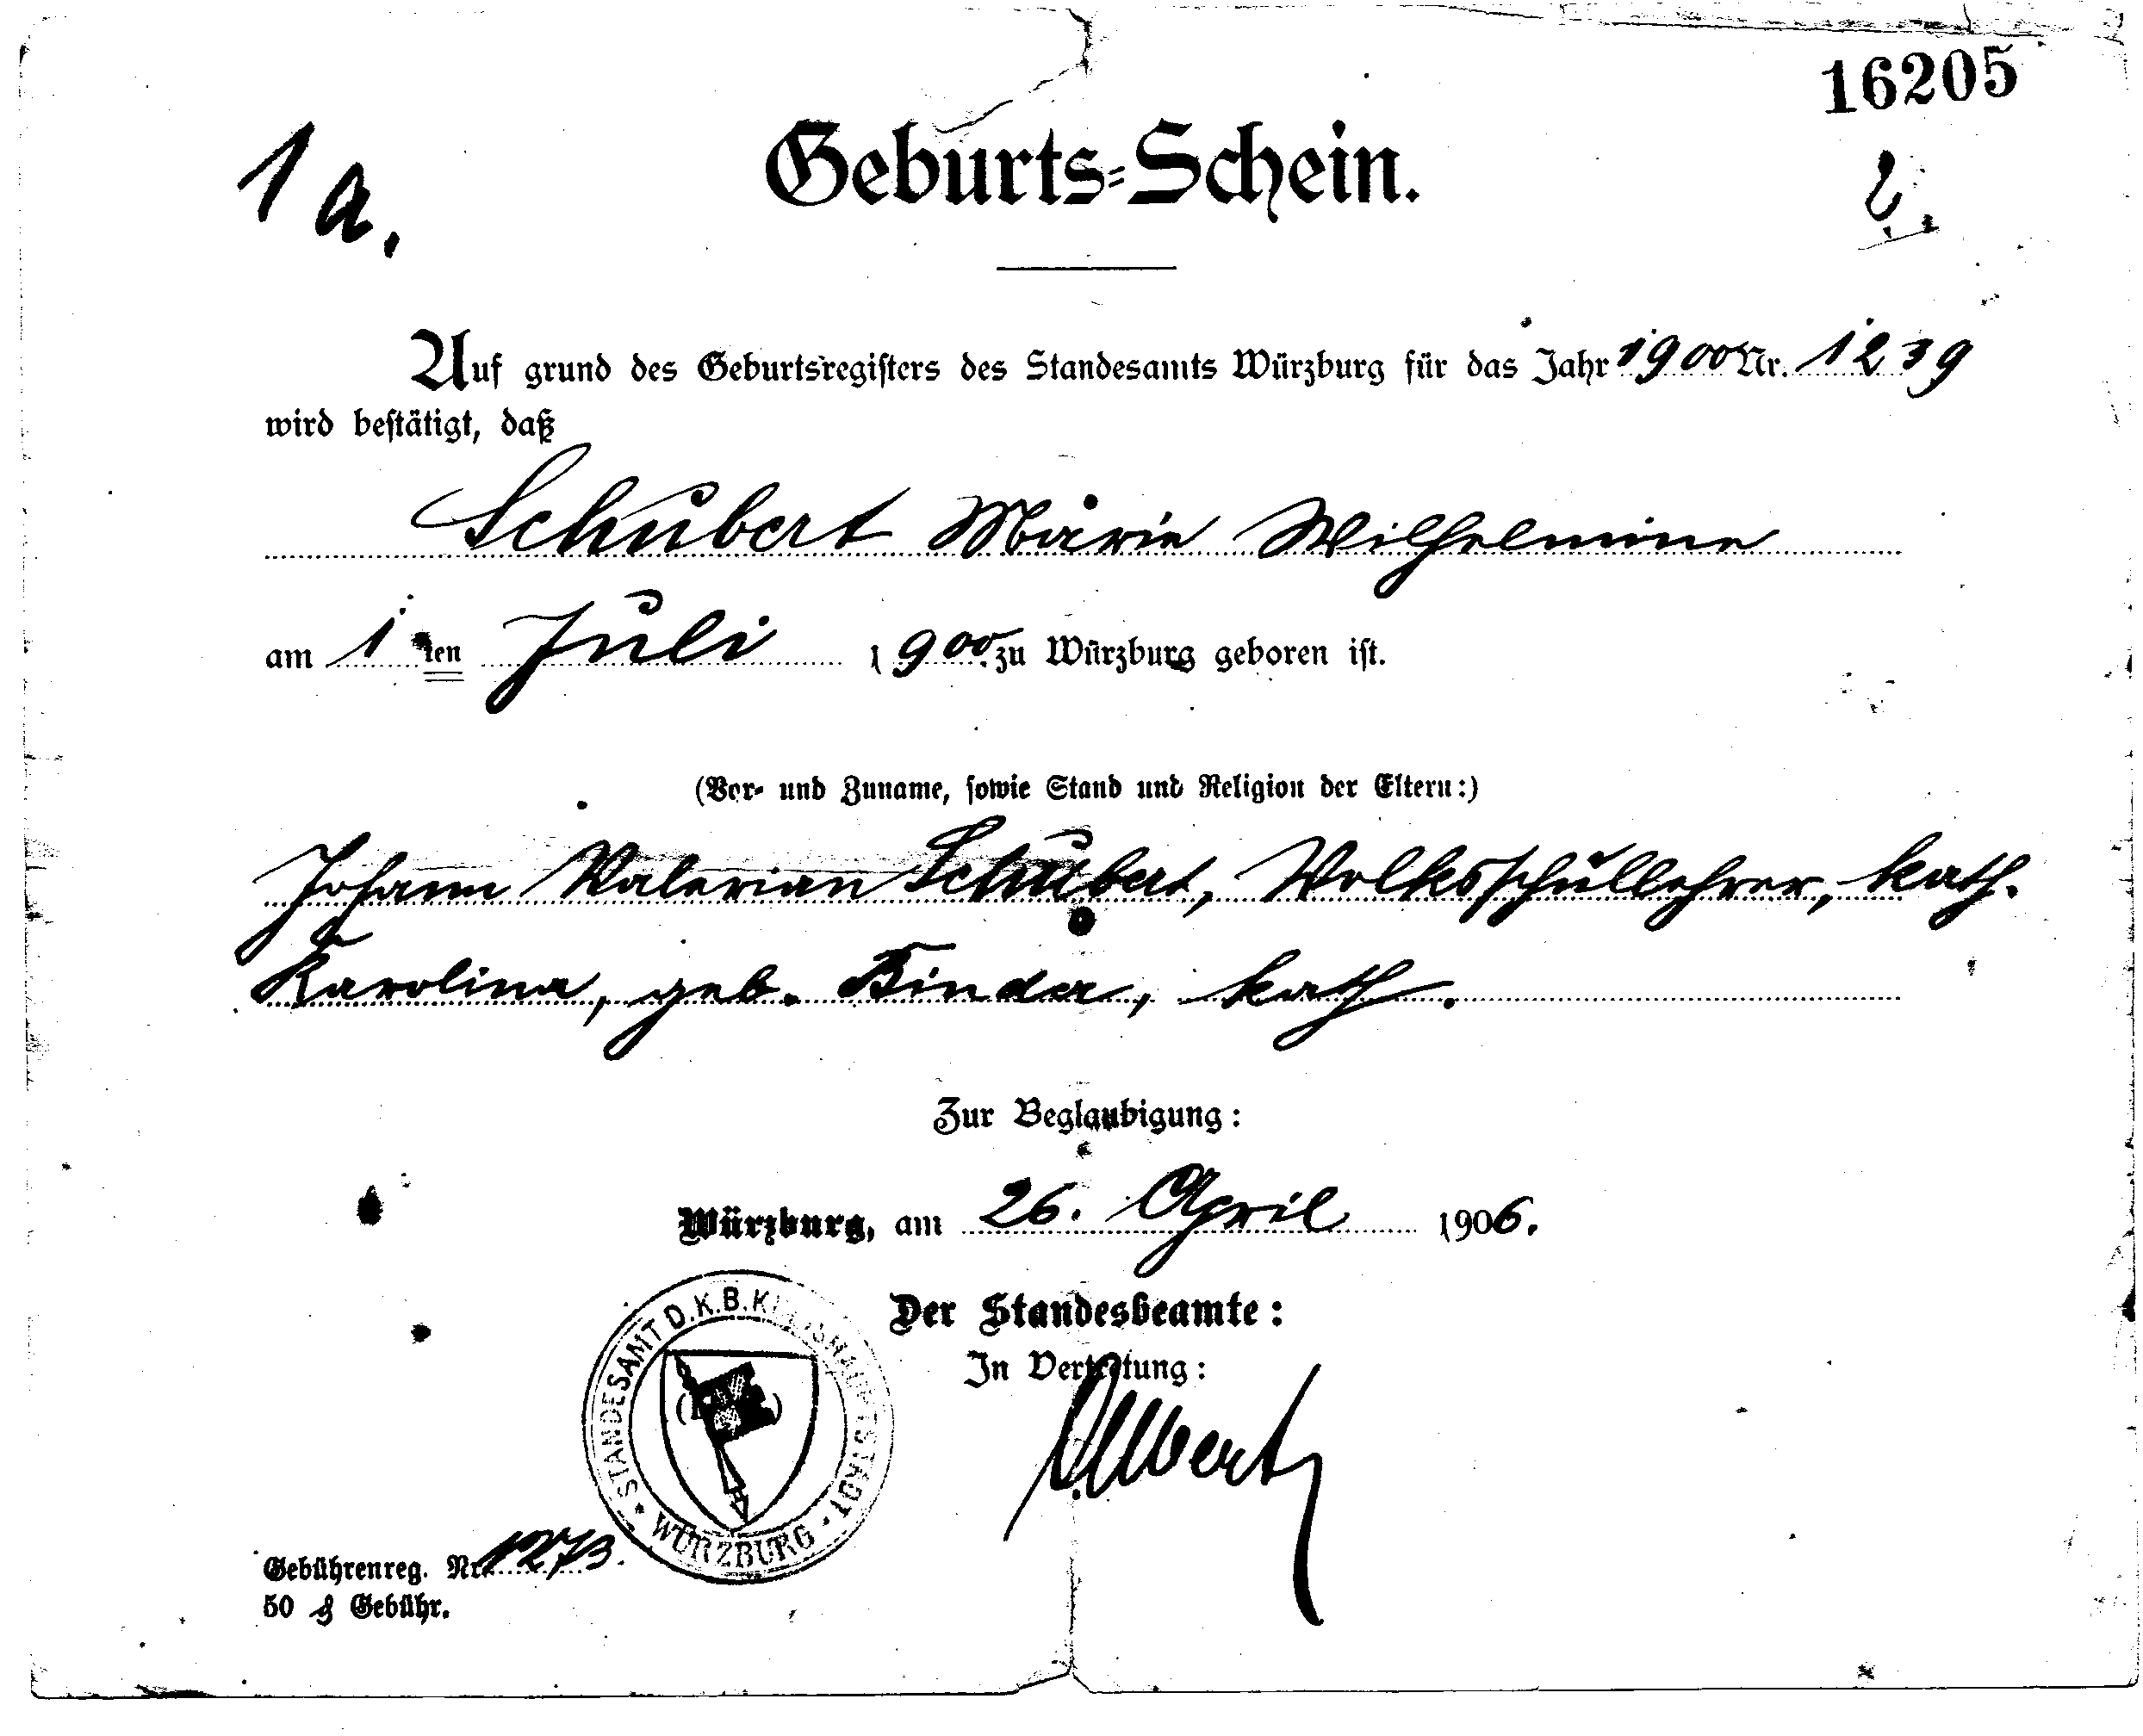 16205
1 a.
Geburts=Schein.
Auf grund des Geburtsregisters des Standesamts Würzburg für das Jahr 1900 Nr. 1239
wird bestätigt, daß
Schubert Marie Wilhelmine
am 1 ten Juli 1900 zu Würzburg geboren ist.
(Vor- und Zuname, sowie Stand und Religion der Eltern:)
Johann Valerian Schubert, Volksschullehrer, kath.
Karolina, geb. Binder, kath.
Zur Beglaubigung:
Würzburg, am 26. April 1906.
Der Standesbeamte:
In Vertretung:
STANDESAMT D.K.B. KREISHAUPTSTADT
WÜRZBURG
Gebührenreg. Nr. 1273.
50 ₰ Gebühr.